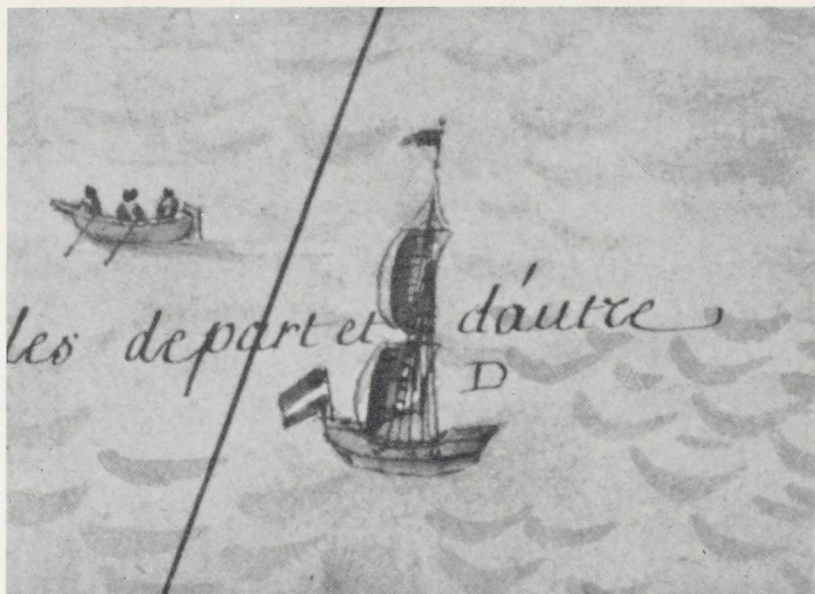 les depart et d'autre
D